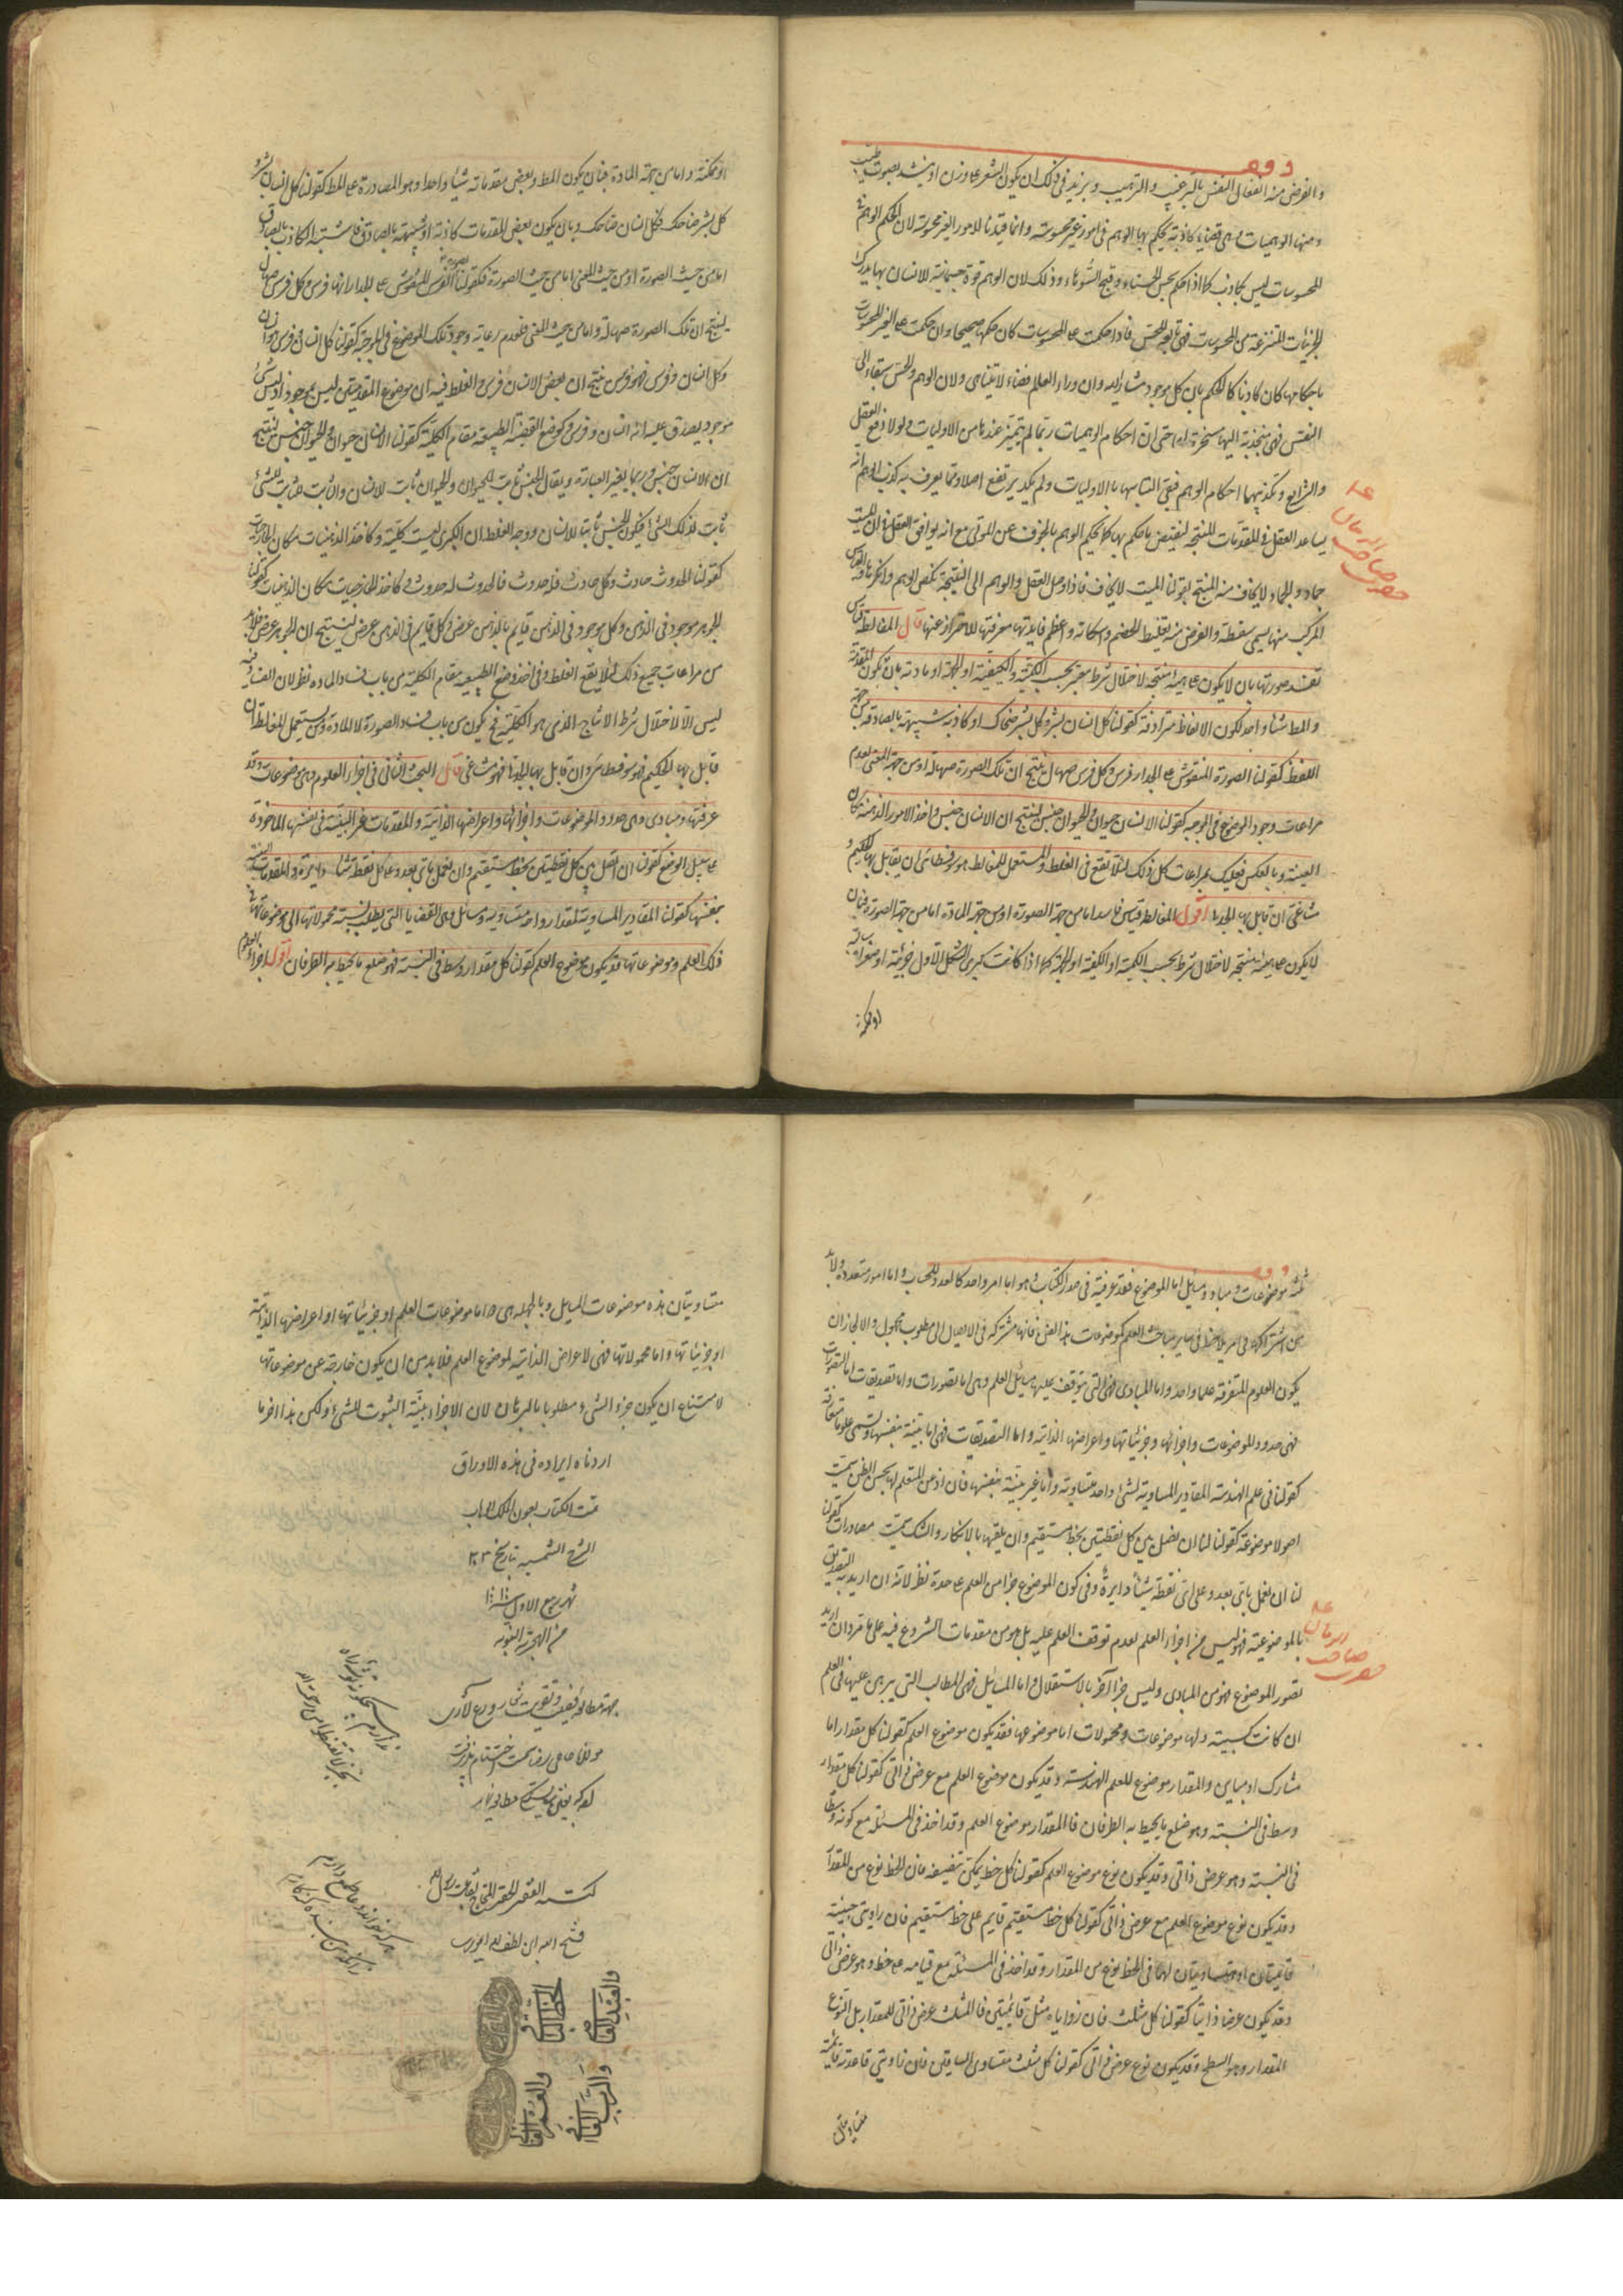 وقف
والغرض منه انفعال النفس بالترغيب والترهيب ويزيد فى ذلك ان يكون الشعر على وزن او ينشد بصوت طيب
ومنها الوهميات وهى قضايا كاذبة يحكم بها الوهم فى امور غير محسوسة وانما قيدنا الامور بالغير محسوسة لان الحكم الوهم فى
المحسوسات ليس بكاذب كما اذا حكم بحسن الحسناء وقبح الشوهاء وذلك لان الوهم قوة جسمانية للانسان بها يدرك
الجزئيات المنتزعة من المحسوسات فهى تابعة للحس فاذا حكمت على المحسوسات كان حكمها صحيحا وان حكمت على الغير المحسوسات
باحكامها كان كاذبا كالحكم بان كل موجود مشار اليه وان وراء العالم فضاء لا يتناهى ولان الوهم والحس سبقا الى
النفس فهى منجذبة اليها مسخرة لها حتى ان احكام الوهميات ربما لم يتميز عندها من الاوليات ولولا دفع العقل
والشرايع وتكذيبهما احكام الوهم فبقى التباسها بالاوليات ولم يكد يرتفع اصلا ومما يعرف به كذب الوهم انه
يساعد العقل فى المقدمات المنتجة لنقيض ما حكم بها كما يحكم الوهم بالخوف عن الموتى مع انه يوافق العقل فى ان الميت
جماد والجماد لا يخاف منه المنتج لقولنا الميت لا يخاف فاذا وصل العقل والوهم الى النتيجة نكص الوهم وانكرها والقياس
المركب منها يسمى سفسطة والغرض منه تغليط الخصم واسكاته واعظم فايدتها معرفتها للاحتراز عنها قال المغالطة قياس
تفسد صورتها بان لا يكون على هيئة منتجة لاختلال شرط معتبر بحسب الكمية والكيفية او الجهة او مادته بان يكون المقدمة
والمط شئا واحد لكون الالفاظ مترادفة كقولنا كل انسان بشر وكل بشر ضحاك او كاذبة شبيهة بالصادقة من جهة
اللفظ كقولنا الصورة المنقوش على الجدار فرس وكل فرس صهال ينتج ان تلك الصورة صهالة او من جهة المعنى لعدم
مراعات وجود الموضوع فى الموجبة كقولنا الانسان حيوان والحيوان جنس لينتج ان الانسان جنس واخذ الامور الذهنية مكان
العينية وبالعكس فعليك بمراعات كل ذلك لئلا تقع فى الغلط والمستعمل للمغالطة هو سوفسطائى ان يقابل بها الحكيم و
مشاغبى ان قابل بها الجدلى اقول المغالطة قياس فاسد اما من جهة الصورة او من جهة المادة اما من جهة الصورة فبان
لا يكون على هيئة منتجة لاختلال شرط بحسب الكمية او الكيفية او الجهة كما اذا كانت كبرى الشكل الاول جزئية او صغراه سالبة
او ممكنة
او ممكنة واما من جهة المادة فبان يكون المط وبعض مقدماته شيئا واحدا وهو المصادرة على المط كقولنا كل انسان بشر و
كل بشر ضحاك فكل انسان ضحاك وبان يكون بعض المقدمات كاذبة او شبيهة بالصادق فاشتبه الكاذب بالصادق
اما من حيث الصورة او من حيث المعنى اما من حيث الصورة فكقولنا الفرس المنقوش على الجدار انها فرس وكل فرس صهال
لينتج ان تلك الصورة صهالة واما من حيث المعنى فلعدم رعاية وجود تلك الموضوع فى الموجبة كقولنا كل انسان وفرس فهو انسان
وكل انسان وفرس فهو فرس ينتج ان بعض الانسان فرس والغلط فيه ان موضوع المقدمتين ليس بموجود اذ ليس شئ
موجود يصدق عليه انه انسان وفرس وكوضع القضية الطبيعية مقام الكلية كقولنا الانسان حيوان والحيوان جنس لينتج
ان الانسان جنس وربما يغير العبارة ويقال الجنس ثابت للحيوان والحيوان ثابت للانسان والثابت للثابت للشئ
ثابت لذلك الشئ فيكون الجنس ثابتا للانسان ووجه الغلط ان الكبرى ليست كلية وكاخذ الذهنيات مكان الخارجيات
كقولنا الحدوث حادث وكل حادث فله حدوث فالحدوث له حدوث وكاخذ الخارجيات مكان الذهنيات كقولنا
الجوهر موجود فى الذهن وكل موجود فى الذهن قايم بالذهن عرض وكل قايم فى الذهن عرض لينتج ان الجوهر عرض فلابد
من مراعات جميع ذلك لئلا يقع الغلط وفى اخذ وضع الطبيعية مقام الكلية من باب فساد المادة نظر لان الفساد فيه
ليس الا لاختلال شرط الانتاج الذى هو الكلية فح يكون من باب فساد الصورة لا المادة ومن يستعمل المغالطة ان
قابل بها الحكيم فهو سوفسطائى وان قابل بها الجدلى فهو مشاغبى قال البحث الثانى فى اجزاء العلوم وهى موضوعات وقد
عرفتها ومبادى وهى حدود الموضوعات واجزائها واعراضها الذاتية والمقدمات الغير البينة فى نفسها الماخوذة
على سبيل الوضع كقولنا ان نصل بين كل نقطتين بخط مستقيم وان نعمل باى بعد وعلى كل نقطة شئنا دايرة والمقدمات البينة
بنفسها كقولنا المقادير المساوية لمقدار واحد متساوية ومسائل وهى القضايا التى يطلب نسبة محمولاتها الى موضوعاتها فى
ذلك العلم وموضوعاتها قد يكون موضوع العلم كقولنا كل مقدار وسط فى النسبة فهو ضلع ما يحيط به الطرفان اقول اجزاء العلوم
وقف
ثلثة موضوعات ومباد ومسايل اما الموضوع فقد عرفته فى صدر الكتاب وهو اما امر واحد كالعدد للحساب واما امور متعددة ولابد
من اشتراكها فى امر يلاحظ فى ساير مباحث العلم كموضوعات هذا الفن فانها مشتركة فى الايصال الى مطلوب مجهول والا لجاز ان
يكون العلوم المتفرقة علما واحدا واما المبادى فهى التى يتوقف عليها مسايل العلم وهى اما تصورات واما تصديقات اما التصورات
فهى حدود الموضوعات واجزائها وجزئياتها واعراضها الذاتية واما التصديقات فهى اما بينة بنفسها وتسمى علوما متعارفة
كقولنا فى علم الهندسة المقادير المساوية لشئ واحد متساوية واما غير بينة بنفسها فان اذعن المتعلم لها بحسن الظن سميت
اصولا موضوعة كقولنا لنا ان نصل بين كل نقطتين بخط مستقيم وان يلقها بالانكار والشك سميت مصادرات كقولنا
لنا ان نعمل باى بعد وعلى اى نقطة شئنا دايرة وفى كون الموضوع جزا من العلم على حدة نظر لانه ان اريد به التصديق
بالموضوعية فهو ليس من اجزاء العلم لعدم توقف العلم عليه بل هو من مقدمات الشروع فيه على ما مر وان اريد
تصور الموضوع فهو من المبادى وليس جزا آخر بالاستقلال واما المسائل فهى المطالب التى يبرهن عليها فى العلم
ان كانت كسبية ولها موضوعات ومحمولات اما موضوعها فقد يكون موضوع العلم كقولنا كل مقدار اما
مشارك او مباين والمقدار موضوع للعلم الهندسة وقد يكون موضوع العلم مع عرض ذاتى كقولنا كل مقدار
وسط فى النسبة وهو ضلع ما يحيط به الطرفان فالمقدار موضوع العلم وقد اخذ فى المسئلة مع كونه وسطا
فى النسبة وهو عرض ذاتى وقد يكون نوع موضوع العلم كقولنا كل خط يمكن تنصيفه فان الخط نوع من المقدار
وقد يكون نوع موضوع العلم مع عرض ذاتى كقولنا كل خط مستقيم قايم على خط مستقيم فان زاويتى جنبيه
قائمتان او متساويتان لهما فالخط نوع من المقدار وقد اخذ فى المسئلة مع قيامه على خط وهو عرض ذاتى
وقد يكون عرضا ذاتيا كقولنا كل مثلث فان زواياه مثل قائمتين فالمثلث عرض ذاتى للمقدار بل النوع
المقدار وهو السطح وقد يكون نوع عرض ذاتى كقولنا كل مثلث متساوى الساقين فان زاويتى قاعدته
متساويتان
متساويتان هذه موضوعات المسايل وبالجملة هى اما موضوعات العلم او جزئياتها او اعراضها الذاتية
او جزئياتها واما محمولاتها فهى الاعراض الذاتية لموضوع العلم فلابد من ان يكون خارجة عن موضوعاتها
لامتناع ان يكون جزء الشئ مطلوبا بالبرهان لان الاجزاء بينة الثبوت للشئ وليكن هذا اخر ما
اردناه ايراده فى هذه الاوراق
تمت الكتاب بعون الملك الوهاب
الشرح الشمسيه بتاريخ ٢٣
شهر ربيع الاول سنة
من الهجرة النبوية
كتبه الفقير الحقير المحتاج
فتح الله ابن لطف الله